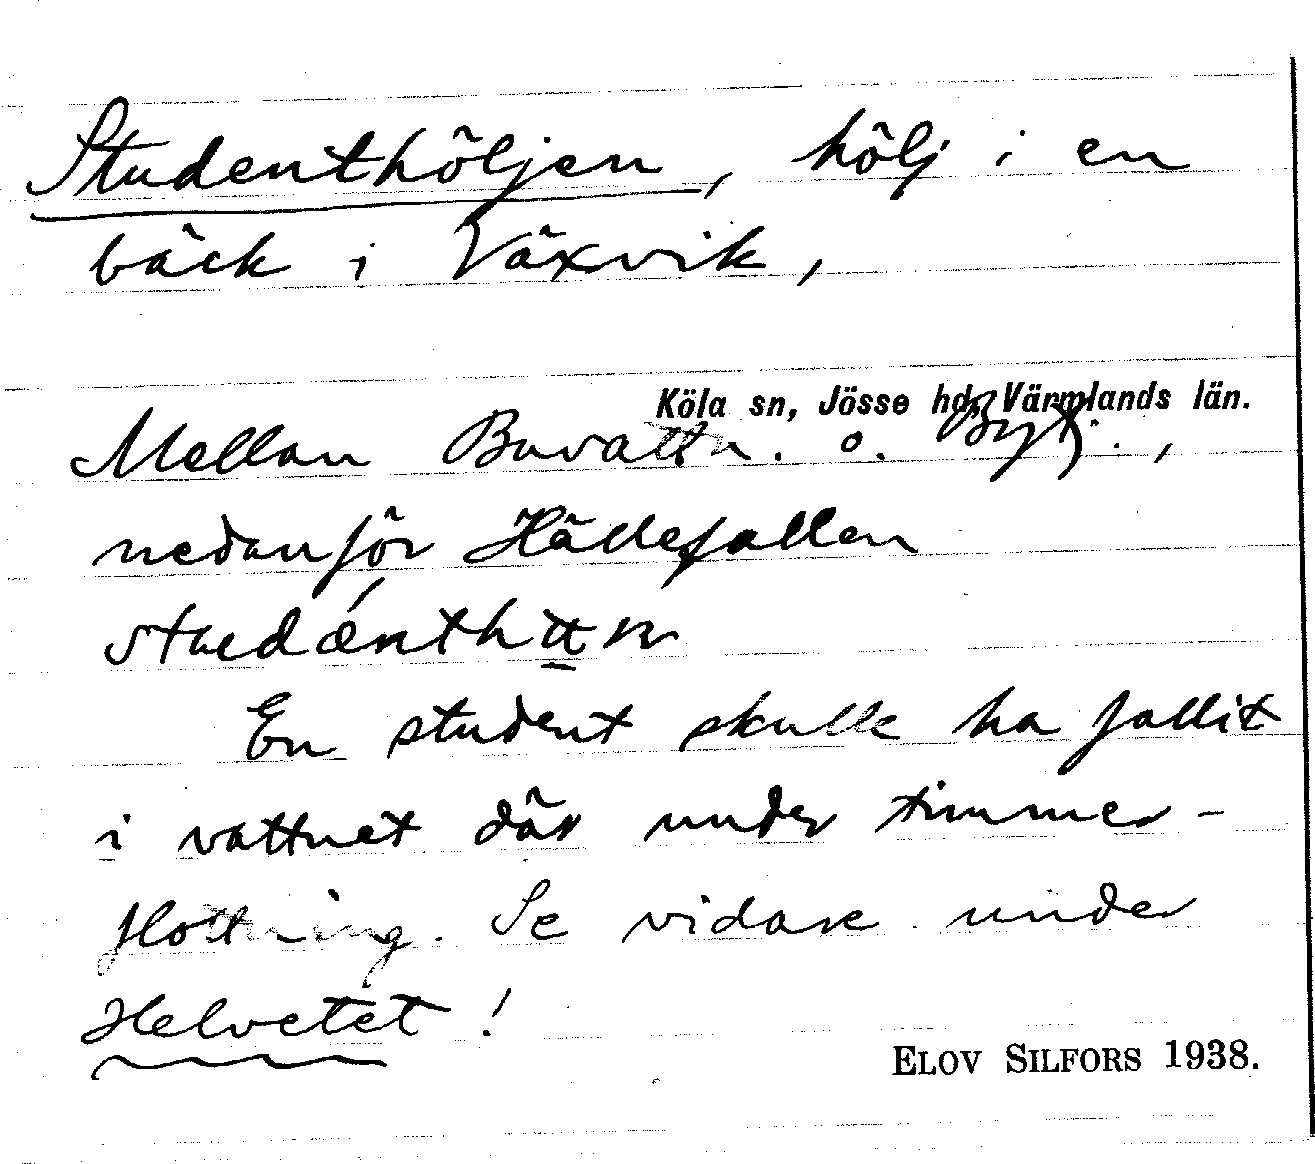 Studenthöljen, hölj i en
bäck i Växvik,
Köla sn, Jösse hd, Värmlands län.
Mellan Bovattn. o. Bytj.,
nedanför Hällefallen
En student skulle ha fallit
i vattnet där under timmer-
flottning. Se vidare under
Helvetet!
ELOV SILFORS 1938.